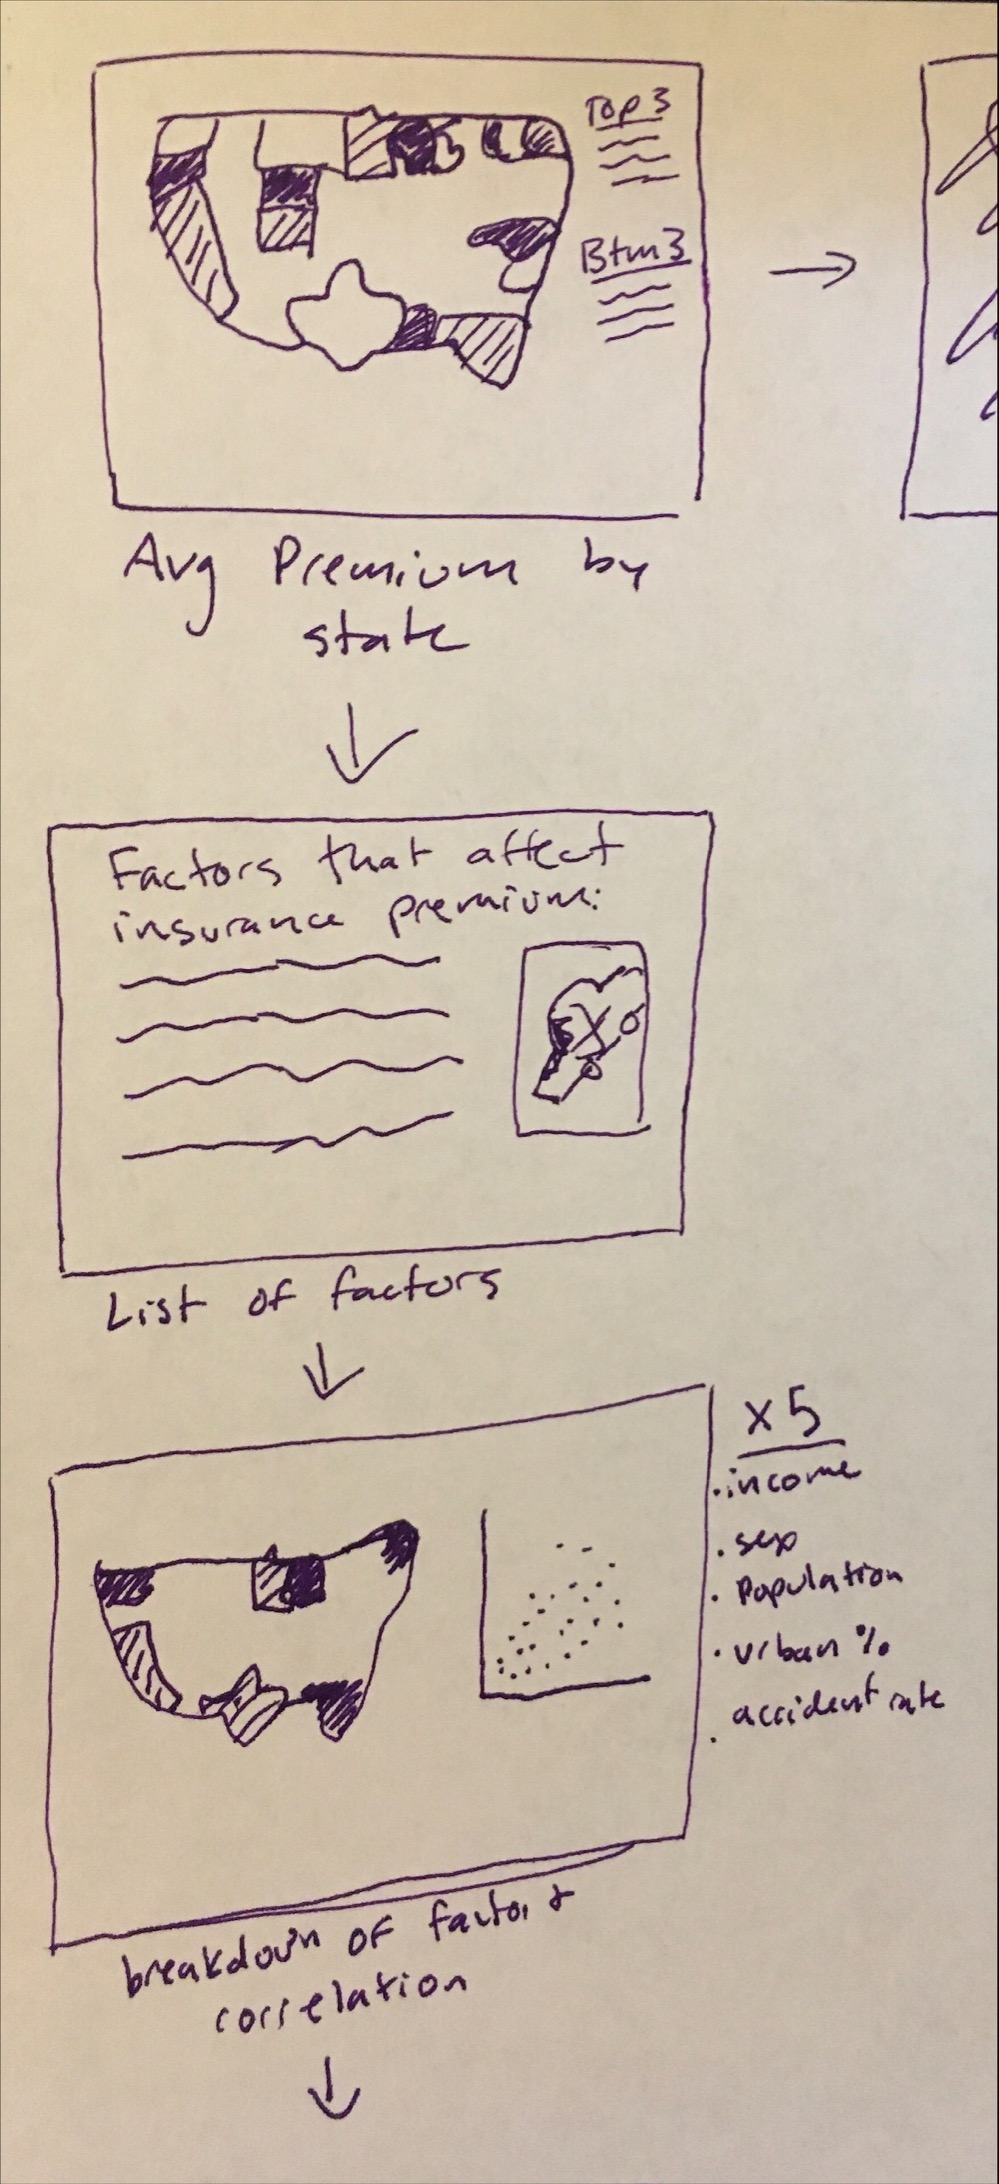 Top 3
Btm 3
Avg Premium by
state
Factors that affect
insurance premium:
List of factors
x 5
• income
• sex
• Population
• urban %
• accident rate
breakdown of factor &
correlation